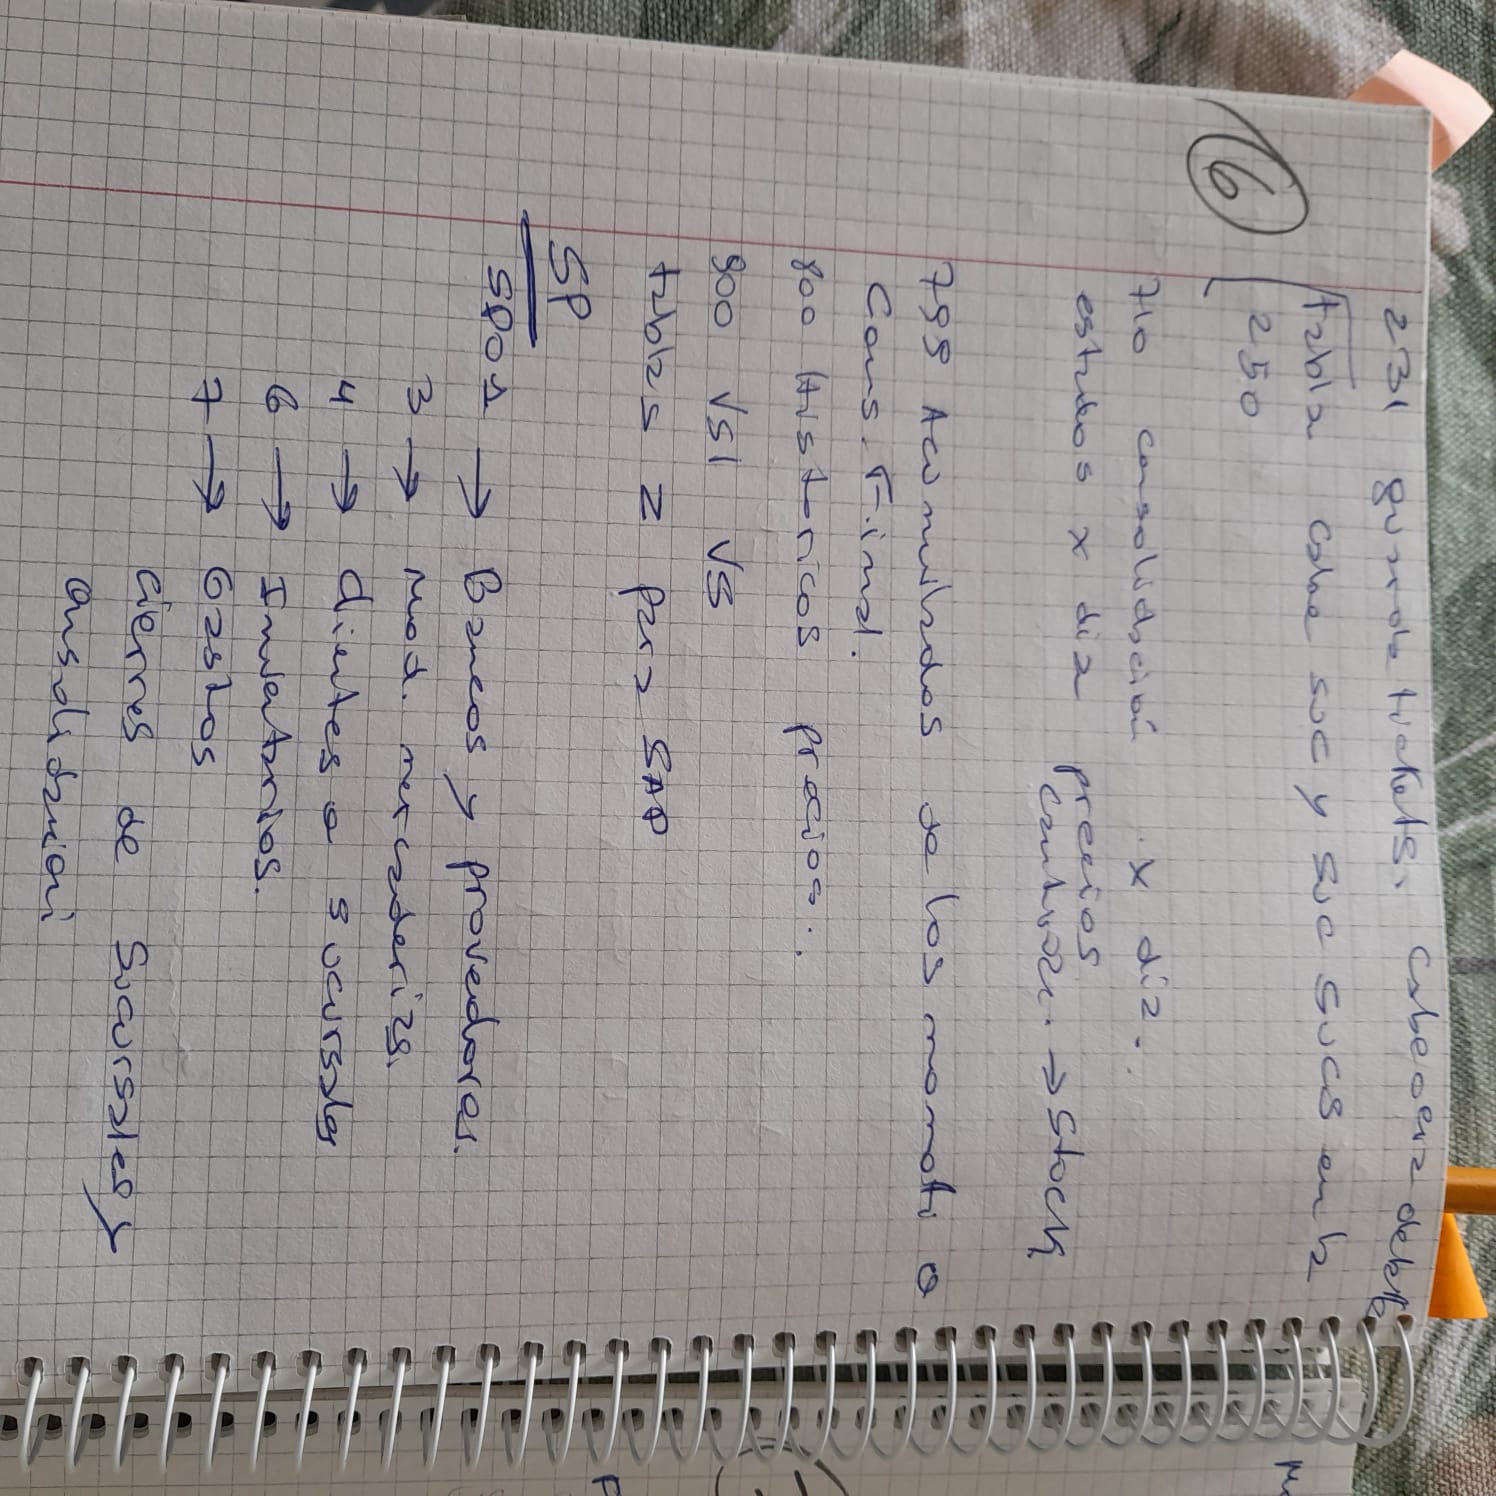 16
231 guarda tickets, cabecera detalle
tabla cabe suc y suc sucs en la
250
710 consolidación x dia.
estados x dia precios
cantidad. → Stock
799 Acumulados de los monoti o
Cons. Final.
800 Históricos precios...
900 VSI VS
tablas Z para SAP
SP
SP01 → Bancos y provedores.
3 → mod. mercaderias.
4 → Clientes a sucursales
6 → Inventarios.
7 → Gastos
Cierres de Sucursales y